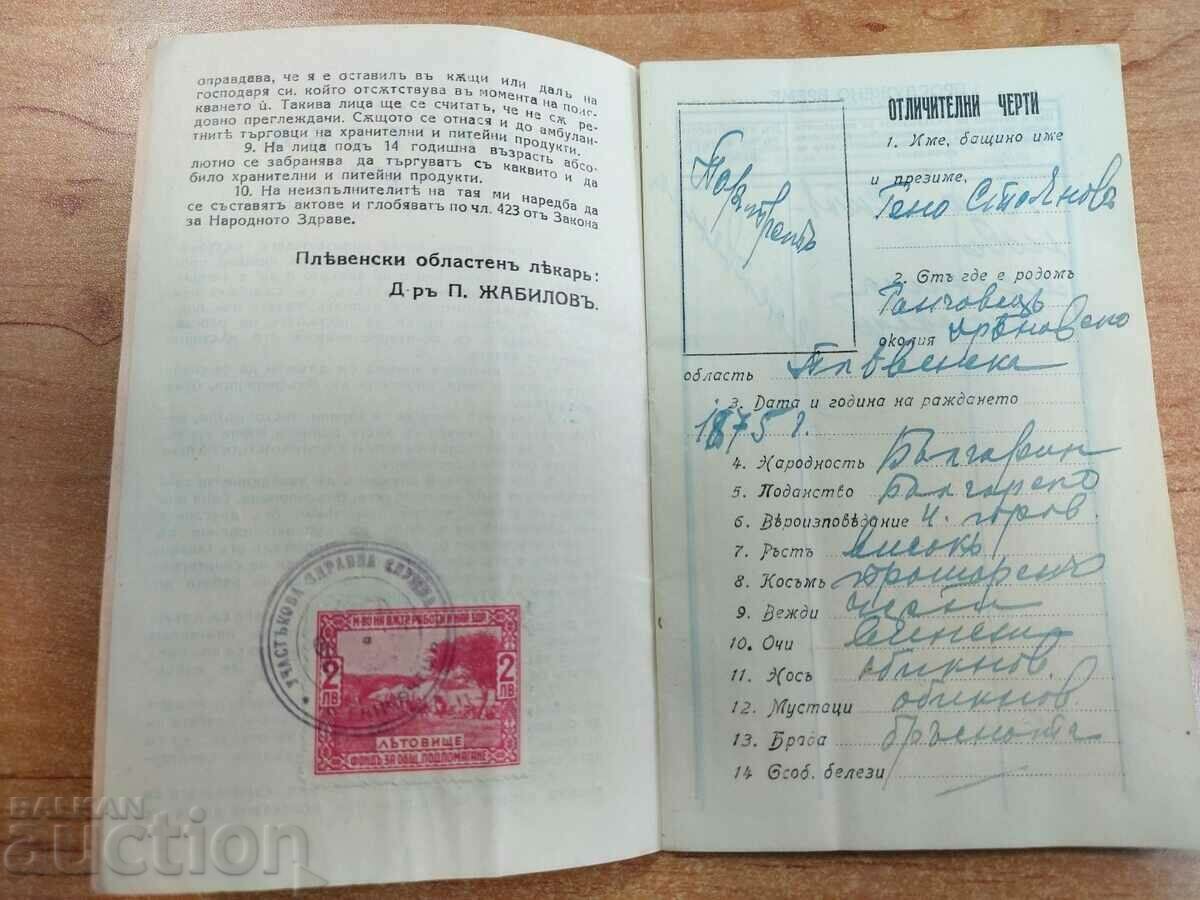 оправдава, че я е оставилъ въ кѫщи или далъ на
господаря си, който отсѫтствува въ момента на поис-
кването ѝ. Такива лица ще се считатъ, че не сѫ ре-
довно преглеждани. Сѫщото се отнася и до амбулан-
тнитѣ търговци на хранителни и питейни продукти.
9. На лица подъ 14 годишна възрасть абсо-
лютно се забранява да търгуватъ съ каквито и да
било хранителни и питейни продукти.
10. На неизпълнителитѣ на тая ми наредба да
се съставятъ актове и глобяватъ по чл. 423 отъ Закона
за Народното Здраве.
Плѣвенски областенъ лѣкарь:
Д-ръ П. ЖАБИЛОВЪ.
УЧАСТЪКОВА ЗДРАВНА СЛУЖБА
М-ВО НА ВѪТР. РАБОТИ И НАР. ЗДР.
2 ЛВ 2 ЛВ
ЛѢТОВИЩЕ
ФОНДЪ ЗА ОБЩ. ПОДПОМАГАНЕ
ОТЛИЧИТЕЛНИ ЧЕРТИ
1. Име, бащино име
и презиме,
Гено Стоянова
2. Отъ где е родомъ
Ганчовецъ
околия Дрѣновско
область Плѣвенска
3. Дата и година на раждането
1875 г.
4. Народность Българин
5. Поданство Българско
6. Вѣроизповѣдание
7. Ръстъ високъ
8. Косъмъ прошаренъ
9. Вежди
10. Очи
11. Носъ обикнов.
12. Мустаци обикнов.
13. Брада бръсната
14 Особ. белези
BALKAN
auction